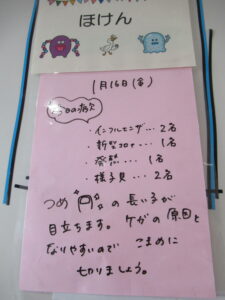 ほけん
1月16日(金)
今日の病欠
・インフルエンザ…2名
・新型コロナ…1名
・発熱…1名
・様子見…2名
つめの長い子が
目立ちます。ケガの原因と
なりやすいので こまめに
切りましょう。